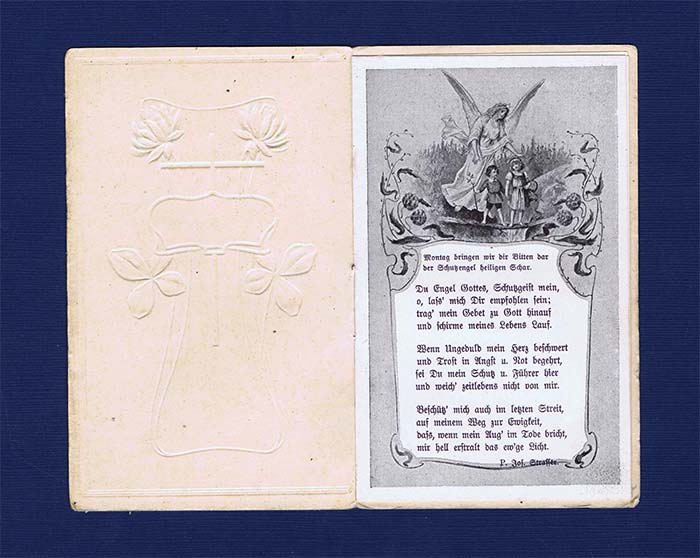 Montag bringen wir dir Bitten dar
der Schutzengel heiligen Schar.
Du Engel Gottes, Schutzgeist mein,
o, lass' mich Dir empfohlen sein;
trag' mein Gebet zu Gott hinauf
und schirme meines Lebens Lauf.
Wenn Ungeduld mein Herz beschwert
und Trost in Angst u. Not begehrt,
sei Du mein Schutz u. Führer hier
und weich' zeitlebens nicht von mir.
Beschütz' mich auch im letzten Streit,
auf meinem Weg zur Ewigkeit,
dass, wenn mein Aug' im Tode bricht,
mir hell erstralt das ew'ge Licht.
P. Jos. Strasser.